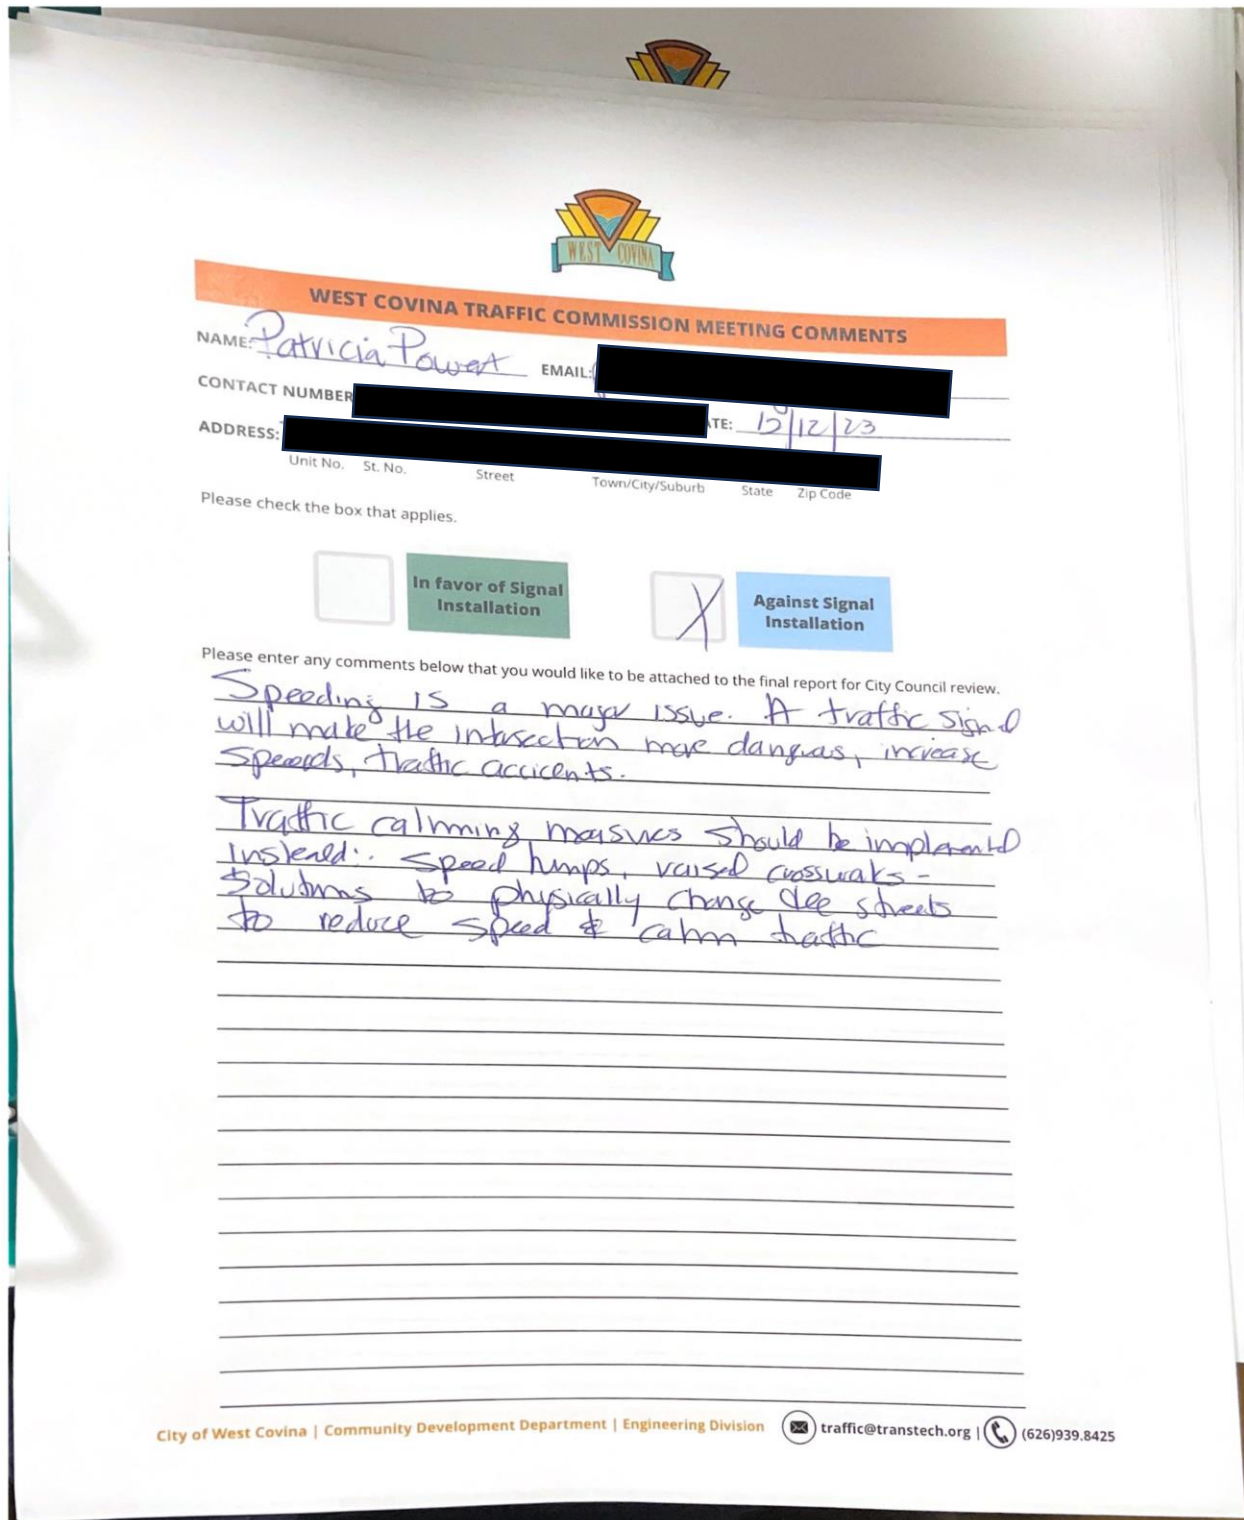 WEST COVINA
WEST COVINA TRAFFIC COMMISSION MEETING COMMENTS
NAME: Patricia Powert EMAIL:
CONTACT NUMBER ATE: 12/12/23
ADDRESS:
Unit No. St. No. Street Town/City/Suburb State Zip Code
Please check the box that applies.
In favor of Signal
Installation
X Against Signal
Installation
Please enter any comments below that you would like to be attached to the final report for City Council review.
Speeding is a major issue. A traffic signal
will make the intersection more dangerous, increase
speeds, traffic accicents.
Traffic calming measures should be implemented
instead: speed humps, raised crosswalks -
solutions to physically change the streets
to reduce speed & calm traffic
City of West Covina | Community Development Department | Engineering Division traffic@transtech.org | (626)939.8425